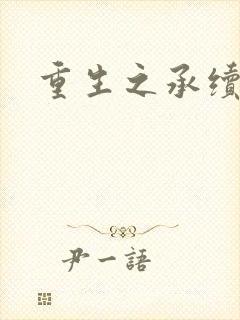 重生之承續
尹一語